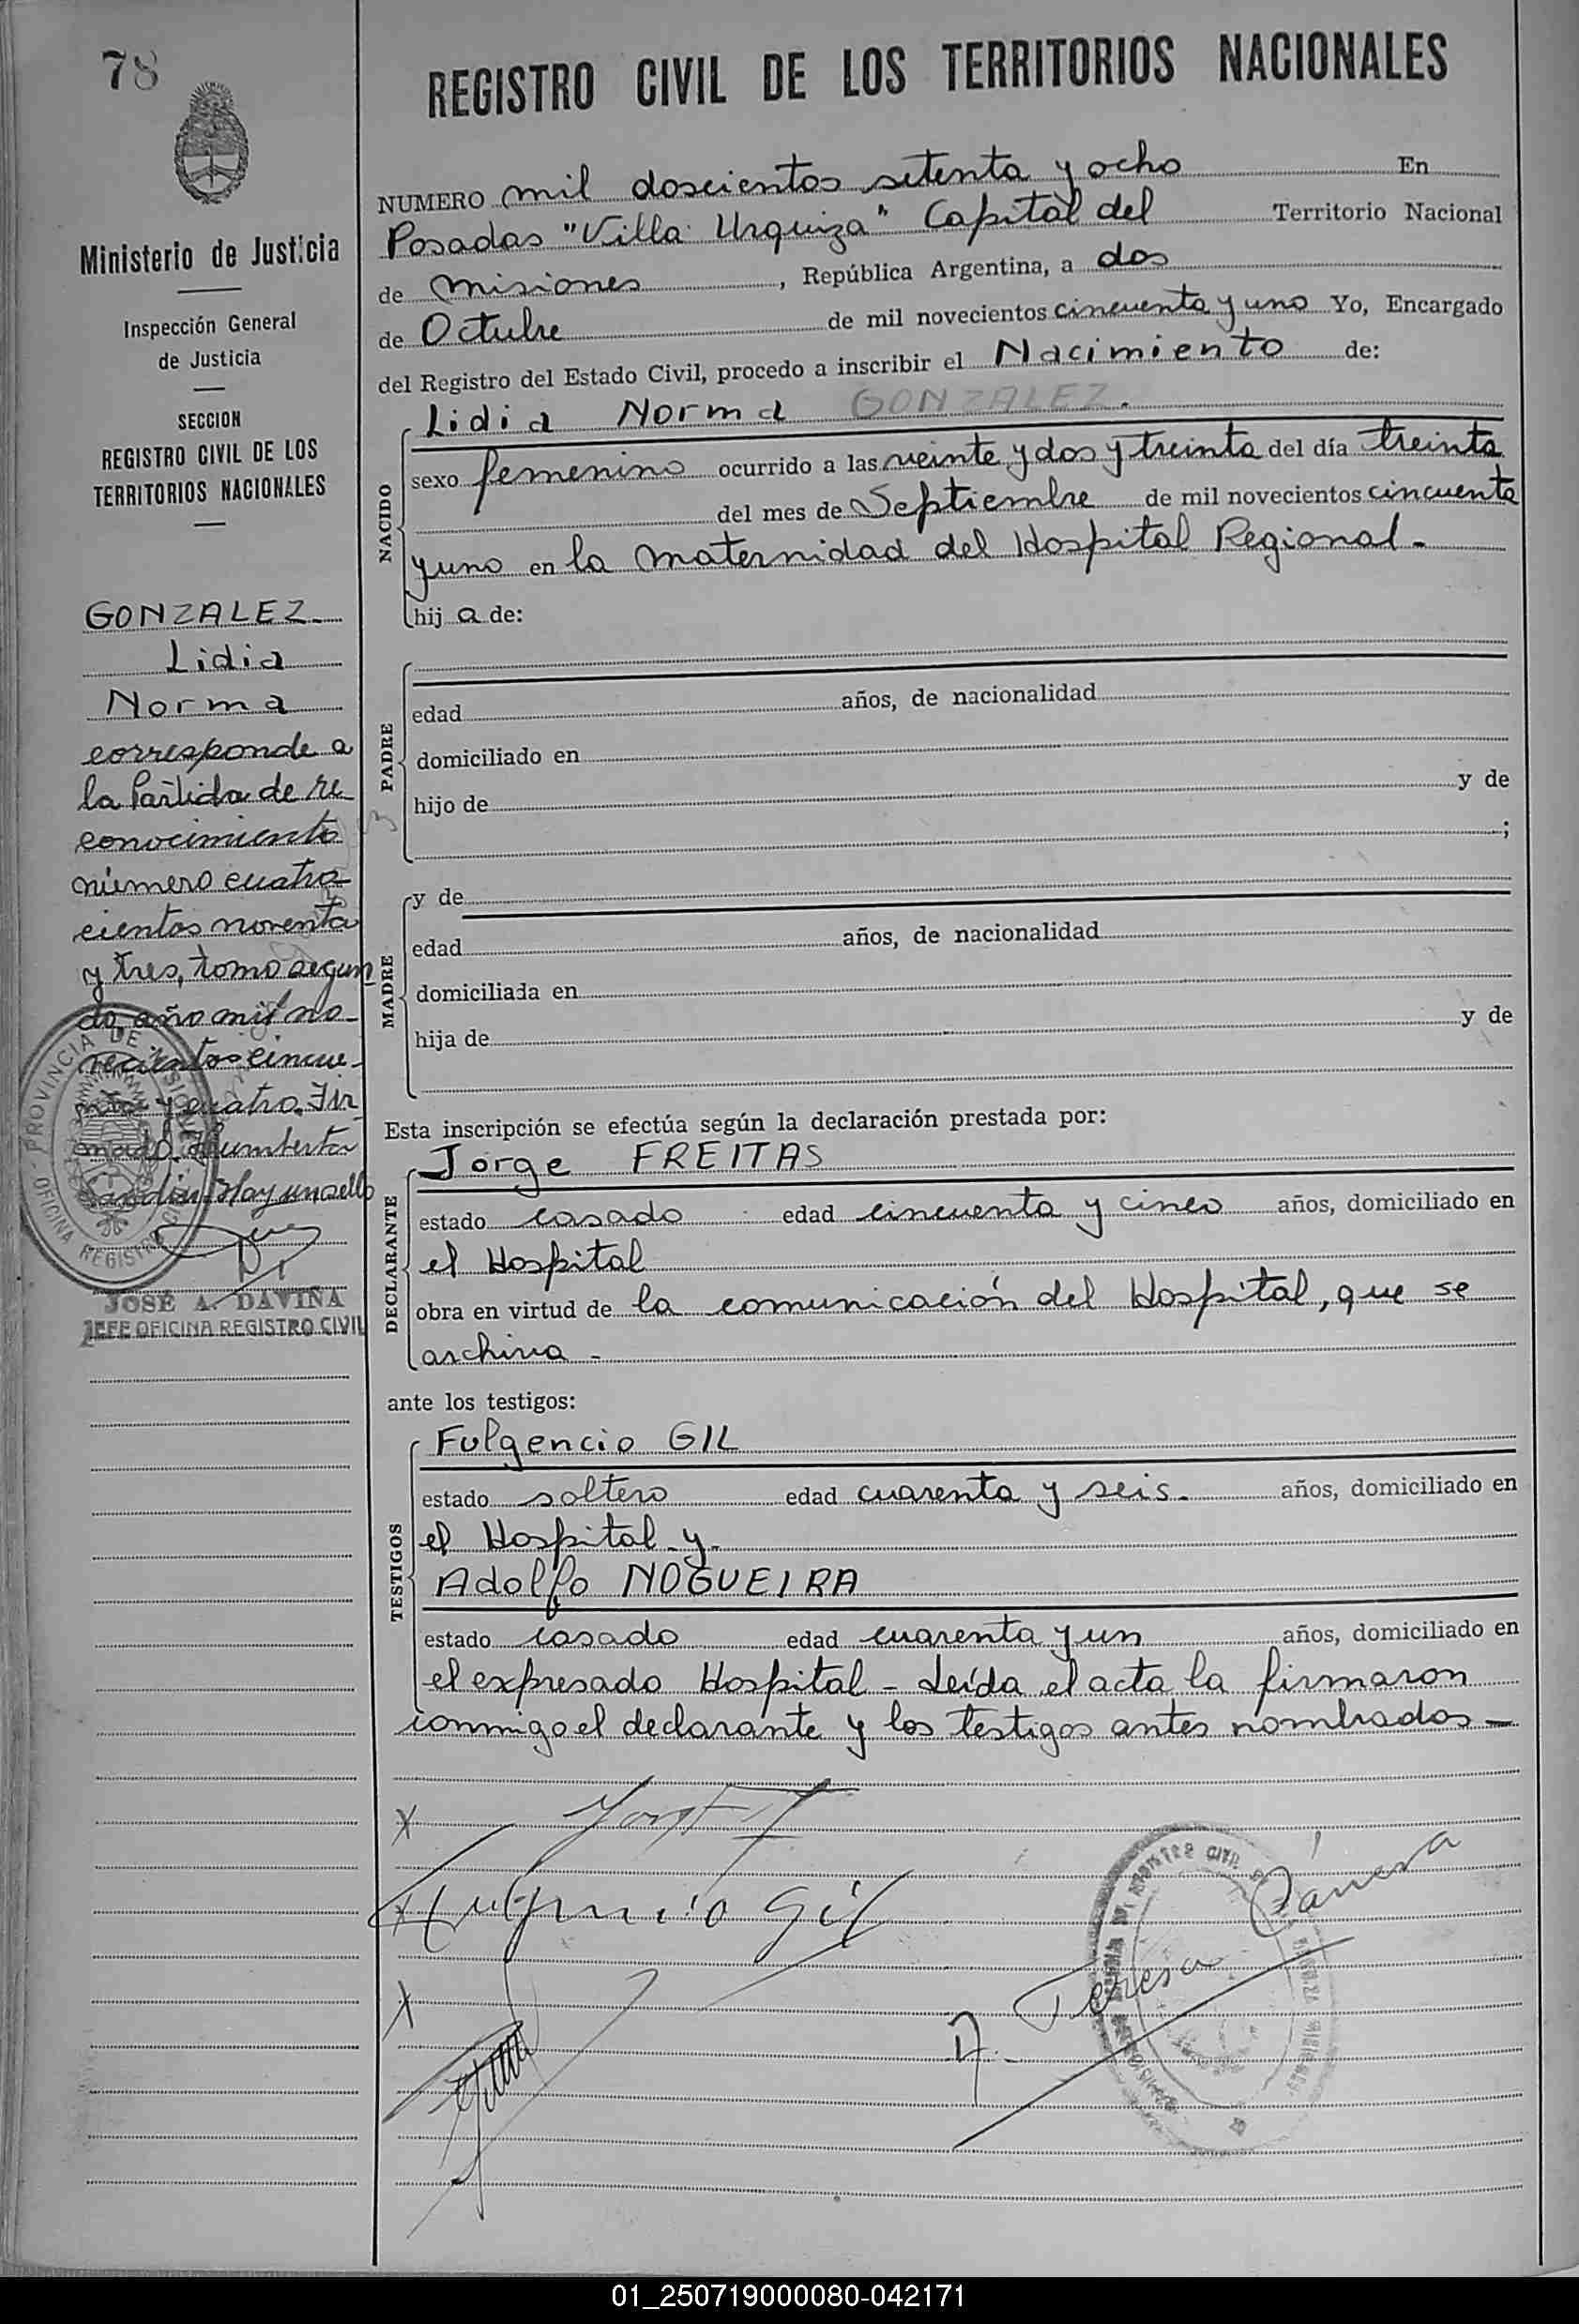 78
REGISTRO CIVIL DE LOS TERRITORIOS NACIONALES
Ministerio de Justicia
Inspección General
de Justicia
SECCION
REGISTRO CIVIL DE LOS
TERRITORIOS NACIONALES
GONZALEZ
Lidia
Norma
corresponde a
la Partida de re
conocimiento
número cuatro
cientos noventa
y tres, tomo segun
do, año mil no-
vecientos cincue-
nta y cuatro. Fir
mado. Humberto
Hay un sello
PROVINCIA DE MISIONES
OFICINA REGISTRO CIVIL
JOSÉ A. DAVIÑA
JEFE OFICINA REGISTRO CIVIL
NUMERO mil doscientos setenta y ocho En
Posadas "Villa Urquiza" Capital del Territorio Nacional
de Misiones, República Argentina, a dos
de Octubre de mil novecientos cincuenta y uno Yo, Encargado
del Registro del Estado Civil, procedo a inscribir el Nacimiento de:
NACIDO
Lidia Norma GONZALEZ.
sexo femenino ocurrido a las veinte y dos y treinta del día treinta
del mes de Septiembre de mil novecientos cincuenta
y uno en la maternidad del Hospital Regional-
hij a de:
PADRE
edad años, de nacionalidad
domiciliado en
hijo de y de
;
MADRE
y de
edad años, de nacionalidad
domiciliada en
hija de y de
Esta inscripción se efectúa según la declaración prestada por:
DECLARANTE
Jorge FREITAS
estado casado edad cincuenta y cinco años, domiciliado en
el Hospital
obra en virtud de la comunicación del Hospital, que se
archiva-
ante los testigos:
TESTIGOS
Fulgencio GIL
estado soltero edad cuarenta y seis- años, domiciliado en
el Hospital-y-
Adolfo NOGUEIRA
estado casado edad cuarenta y un años, domiciliado en
el expresado Hospital - Leída el acta la firmaron
conmigo el declarante y los testigos antes nombrados-
X
Fulgencio Gil
X
A. Teresa
01_250719000080-042171